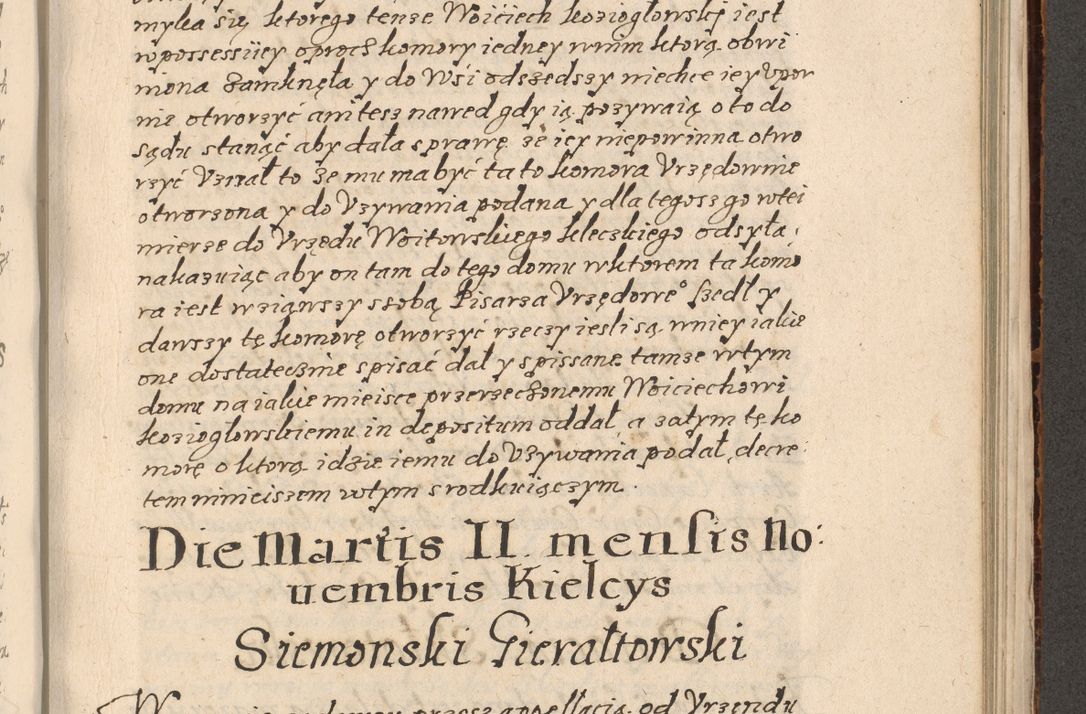 myka się ktorego tenze Woiciech kozioglowski iest
w possessiiey oprocz komory iedney wnim ktorą obwi
niona zamknęła y do Wśi odszedszy niechce iey Vpor
nie otworzyć ani tesz nawed gdy ią pozywaią o to do
sądu stanąć aby dała sprawę ze iey niepowinna otwo
rzyć Vznał to ze mu ma być ta to komora Vrzędownie
otworzona y do Vzywania podana y dla tegosz go wtei
mierze do Vrzędu Woitowskiego kleczkiego odsyła
nakazuiąc aby on tam do tego domu wktorem ta komo
ra iest wziąwszy ssobą Pisarza Vrzędowe° szedł y
dawszy tę komorę otworzyć rzeczy iesli są wniey iakie
one dostatecznie spisać dał y spissane tamze wtym
domu na iakie mieisce przerzeczonemu Woiciechowi
kozioglowskiemu in depositum oddał a zatym tę ko
morę o ktorą idzie iemu do Vzywania podał, decre
tem ninieiszem wtym srodkuiączym.
Die Martis II. mensis No:
uembris Kielcys
Siemonski Gieraltowski
przesz appellacią od Vrzendu